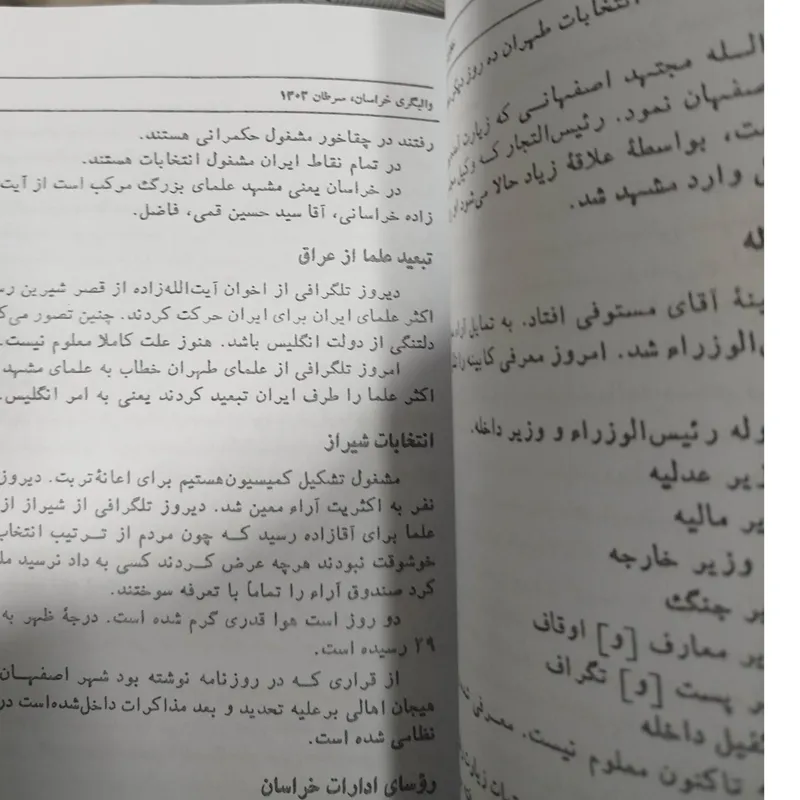 انتخابات طهران ده روز دیگر
الله مجتهد اصفهانی که زیارت
صفهان نمود. رئیس‌التجار که وکیل
ت، بواسطهٔ علاقهٔ زیاد حالا می‌شود
وارد مشهد شد.
له
ینهٔ آقای مستوفی افتاد. به تمایل
‌الوزراء شد. امروز معرفی کابینه را
وله رئیس‌الوزراء و وزیر داخله.
زیر عدلیه
یر مالیه
وزیر خارجه
یر جنگ
یر معارف [و] اوقاف
ر پست [و] تگراف
کفیل داخله
ه تاکنون معلوم نیست. معرفی
والیگری خراسان، سرطان ۱۳۰۲
رفتند در چقاخور مشغول حکمرانی هستند.
در تمام نقاط ایران مشغول انتخابات هستند.
در خراسان یعنی مشهد علمای بزرگ مرکب است از آیت
زاده خراسانی، آقا سید حسین قمی، فاضل.
تبعید علما از عراق
دیروز تلگرافی از اخوان آیت‌الله‌زاده از قصر شیرین رس
اکثر علمای ایران برای ایران حرکت کردند. چنین تصور می‌ک
دلتنگی از دولت انگلیس باشد. هنوز علت کاملا معلوم نیست.
امروز تلگرافی از علمای طهران خطاب به علمای مشهد
اکثر علما را طرف ایران تبعید کردند یعنی به امر انگلیس.
انتخابات شیراز
مشغول تشکیل کمیسیون هستیم برای اعانهٔ تربت. دیروز
نفر به اکثریت آراء معین شد. دیروز تلگرافی از شیراز از
علما برای آقازاده رسید که چون مردم از ترتیب انتخاب
خوشوقت نبودند هرچه عرض کردند کسی به داد نرسید مل
کرد صندوق آراء را تماماً با تعرفه سوختند.
دو روز است هوا قدری گرم شده است. درجهٔ ظهر به
۲۹ رسیده است.
از قراری که در روزنامه نوشته بود شهر اصفهان
هیجان اهالی برعلیه تحدید و بعد مذاکرات داخل‌شده‌است در
نظامی شده است.
رؤسای ادارات خراسان